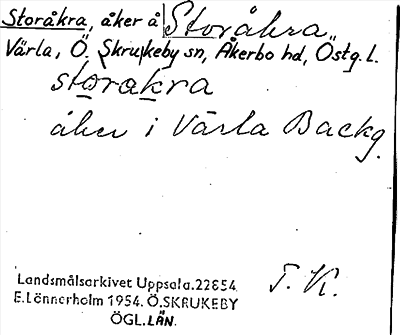 Storåkra, åker å Storåkra
Värla, Ö. Skrukeby sn, Åkerbo hd, Östg. l.
storakra
åker i Värla Backg.
T. K.
Landsmålsarkivet Uppsala. 22854
E. Lönnerholm 1954. Ö. SKRUKEBY
ÖGL. LÄN.